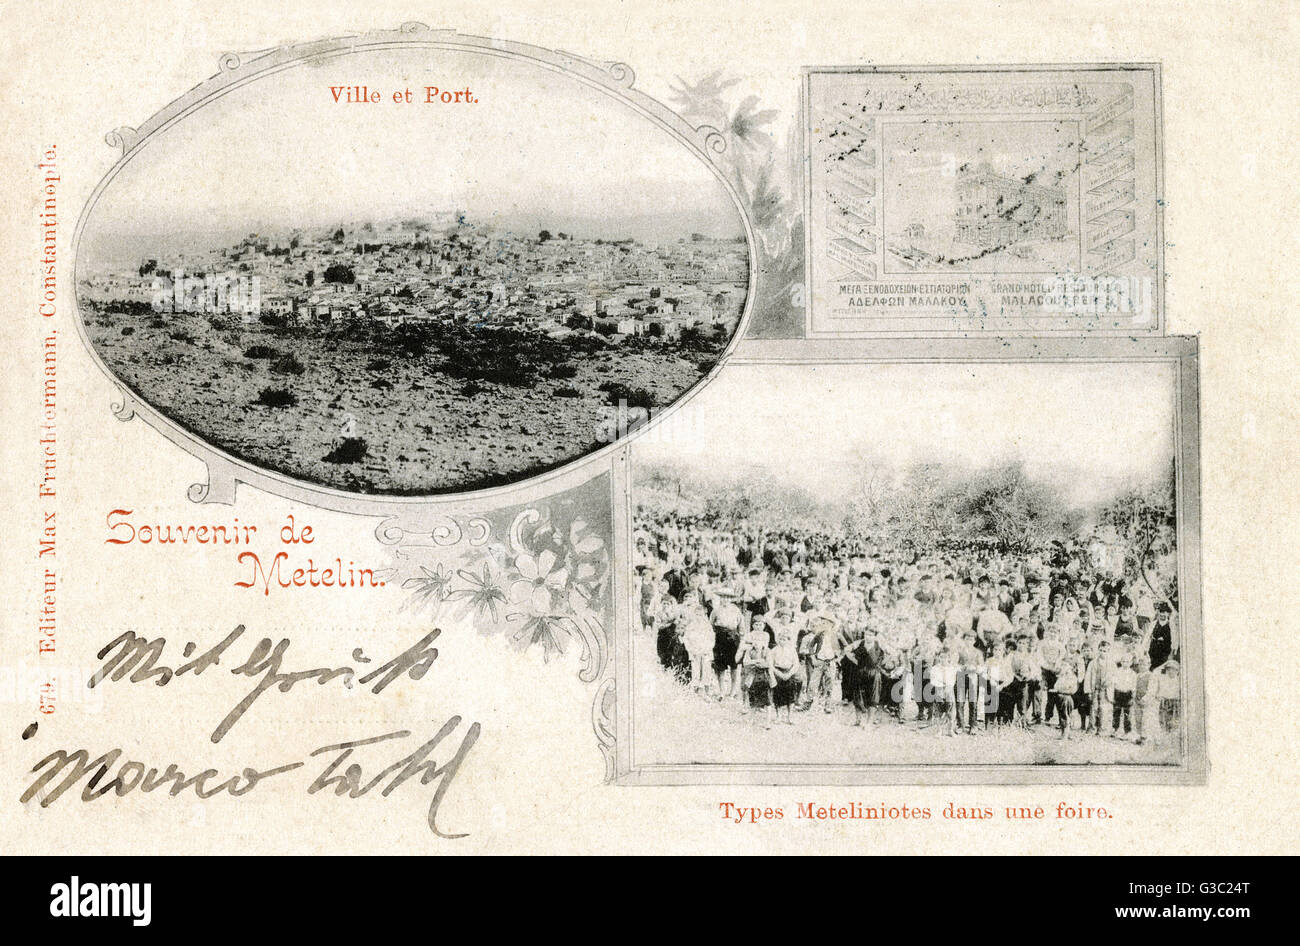 Ville et Port.
679. Editeur Max Fruchtermann, Constantinople.
ΜΕΓΑ ΞΕΝΟΔΟΧΕΙΟΝ-ΕΣΤΙΑΤΟΡΙΟΝ
ΑΔΕΛΦΩΝ ΜΑΛΑΚΟΥ
GRAND HOTEL RESTAURANT
MALACOU FRERES
Souvenir de
Metelin.
Mit Gruß
Marco
Types Meteliniotes dans une foire.
alamy
Image ID: G3C24T
www.alamy.com